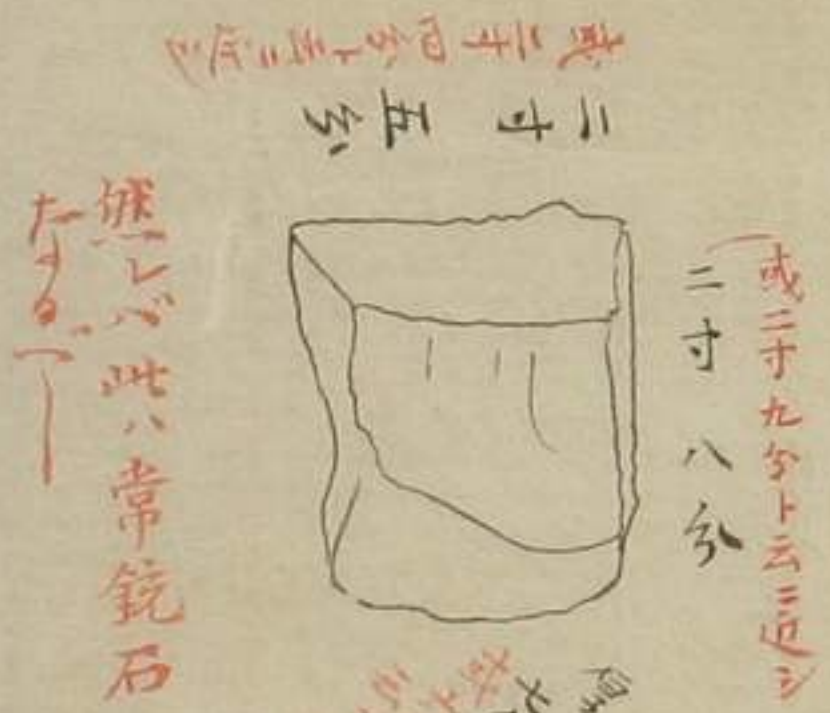 或二寸四分ト云ニ近シ
二寸五分
或二寸九分ト云ニ近シ
二寸八分
然レバ此ハ常銃石
たるべし
厚